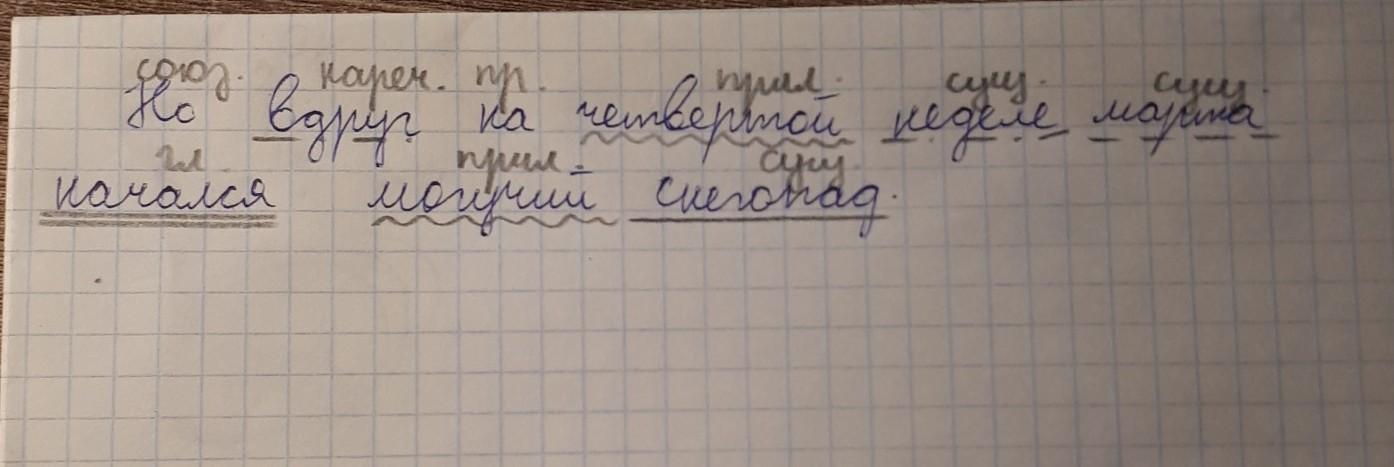 союз. нареч. пр. прил. сущ. сущ.
Но вдруг на четвертой неделе марта
гл. прил. сущ.
начался могучий снегопад.